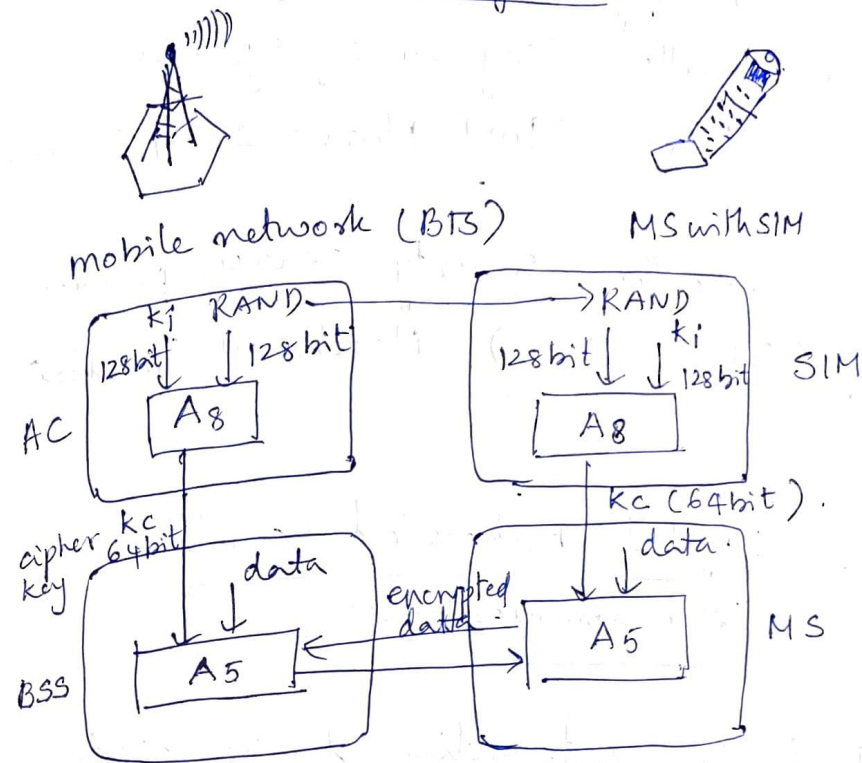 mobile network (BTS)
MS with SIM
ki RAND
128bit 128 bit
A8
AC
RAND
ki
128bit 128bit
A8
SIM
kc (64bit).
cipher key
kc
64bit
data
A5
BSS
encrypted
data
data.
A5
MS